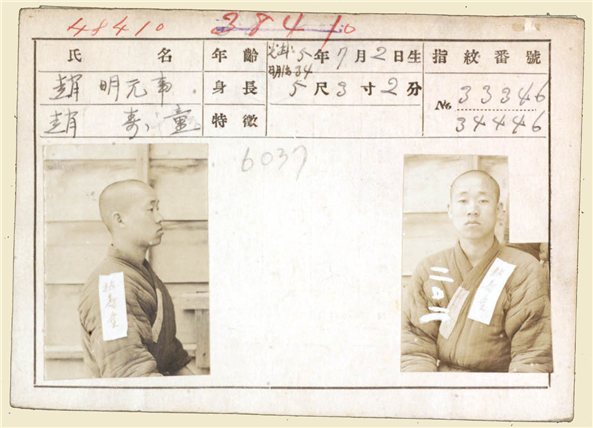 48410 38410
氏名 年齢 光武5年7月2日生 指紋番號
明治34
趙明元事 身長 5尺3寸2分 No. 33346
趙壽童 特徵 34446
6037
趙壽童
二〇二
趙壽童